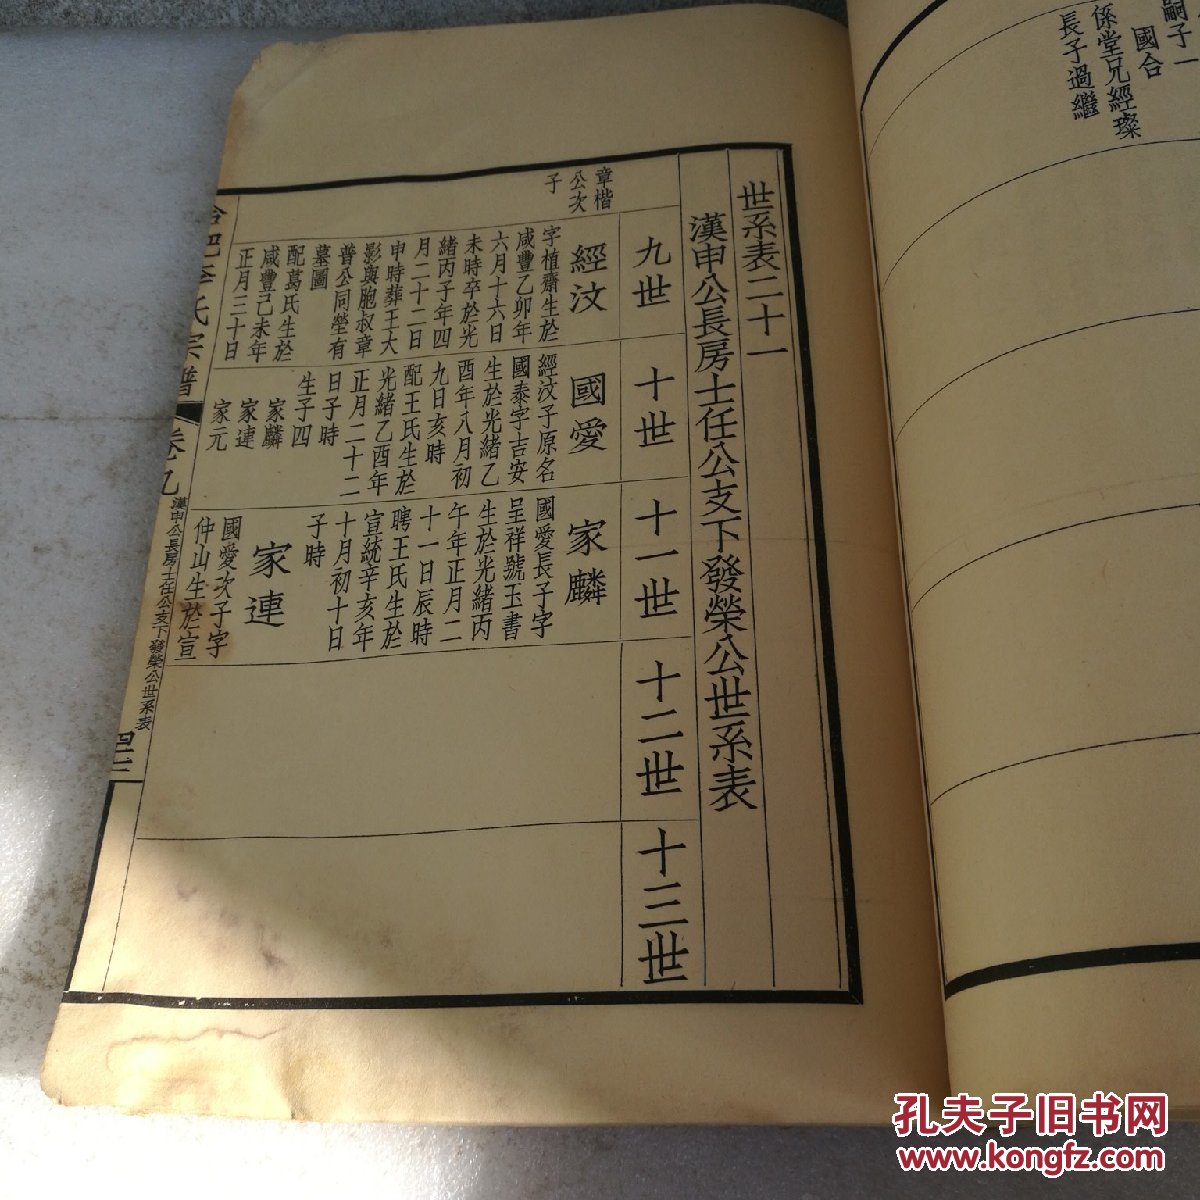 嗣子一
國合
係堂兄經璨
長子過繼
世系表二十一
漢申公長房士任公支下發榮公世系表
九世
十世
十一世
十二世
十三世
章楷
公次
子
經汶
字植齋生於
咸豐乙卯年
六月十六日
未時卒於光
緒丙子年四
月二十二日
申時葬王大
影與胞叔章
普公同塋有
墓圖
配葛氏生於
咸豐己未年
正月三十日
國愛
經汶子原名
國泰字吉安
生於光緒乙
酉年八月初
九日亥時
配王氏生於
光緒乙酉年
正月二十二
日子時
生子四
家麟
家連
家元
家麟
國愛長子字
呈祥號玉書
生於光緒丙
午年正月二
十一日辰時
聘王氏生於
宣統辛亥年
十月初十日
子時
家連
國愛次子字
仲山生於宣
合肥李氏宗譜
卷九
漢申公長房士任公支下發榮公世系表
孔夫子旧书网
www.kongfz.com